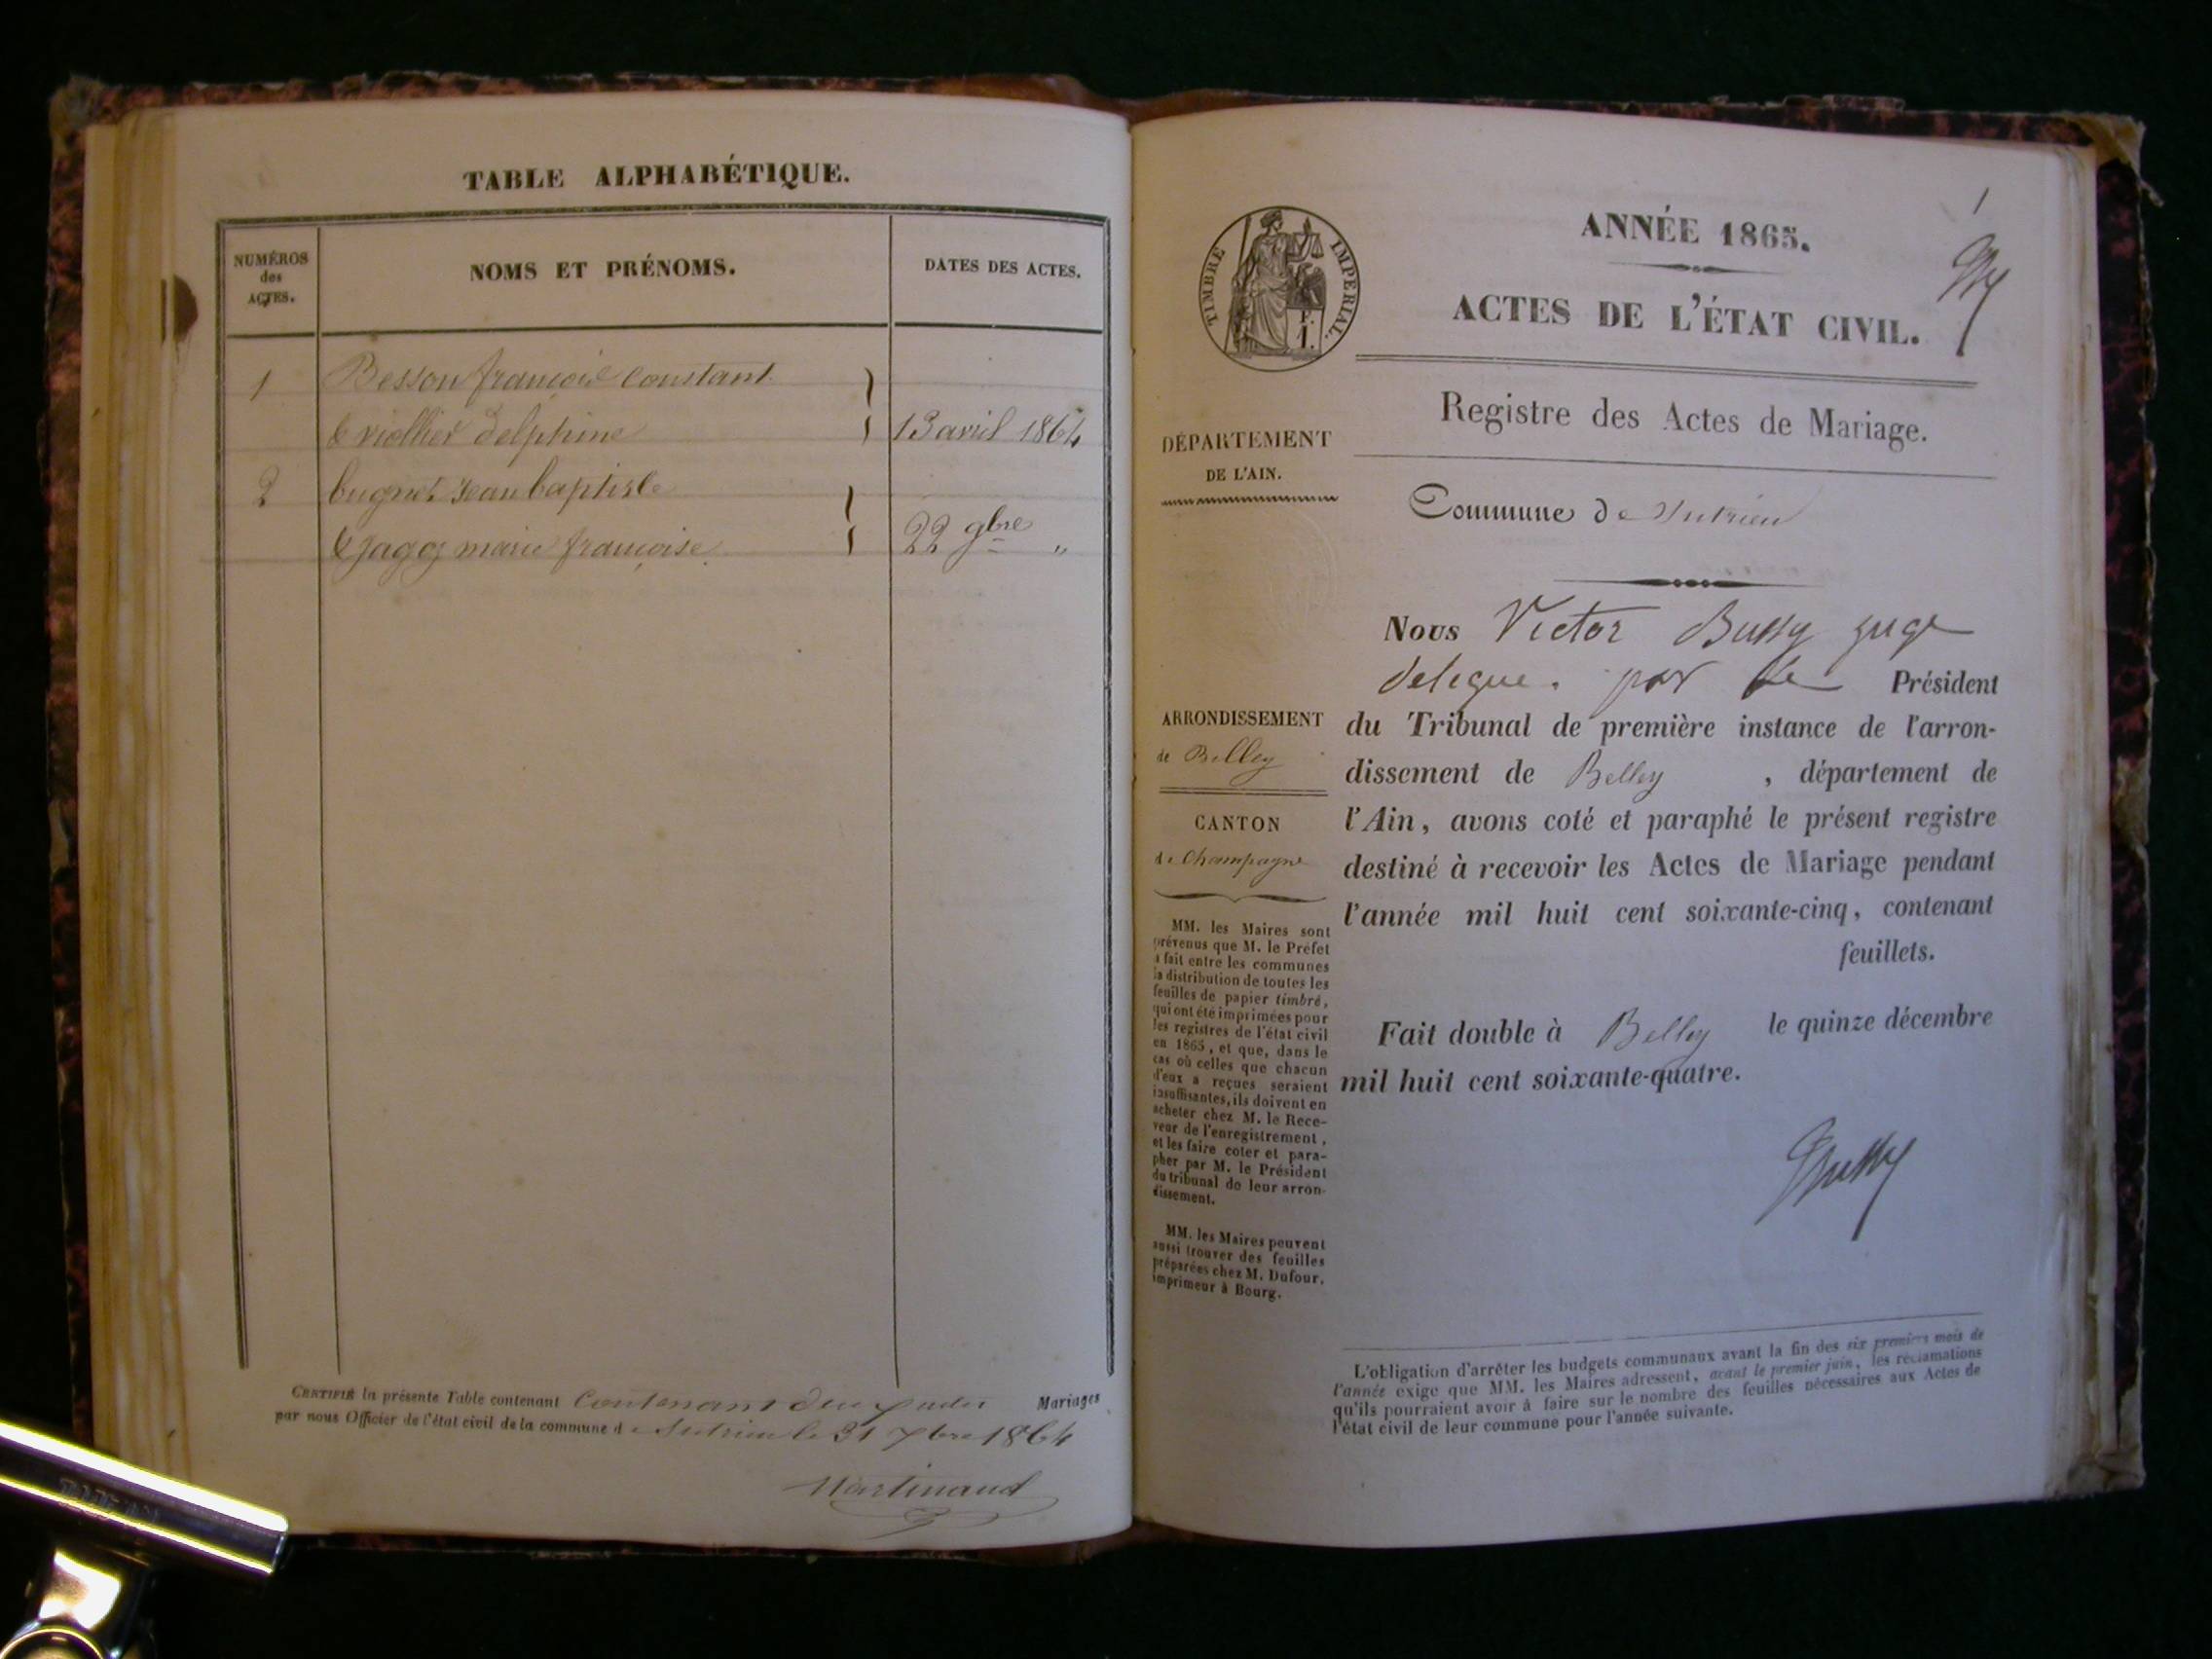 TABLE ALPHABÉTIQUE.
NUMÉROS
des
ACTES.
NOMS ET PRÉNOMS.
DATES DES ACTES.
1
Besson françois Constant
& viollier delphine
13 avril 1864
2
bugnot Jean baptiste
& Jagoz marie françoise
22 9bre "
CERTIFIÉ la présente Table contenant Contenant deux actes Mariages
par nous Officier de l'état civil de la commune de Sutrieu le 31 Xbre 1864
Martinaud
1
TIMBRE IMPÉRIAL.
ANNÉE 1865.
ACTES DE L'ÉTAT CIVIL.
Registre des Actes de Mariage.
DÉPARTEMENT
DE L'AIN.
Commune de Sutrieu
Nous Victor Bussy juge
délégué par le Président
du Tribunal de première instance de l'arron-
dissement de Belley , département de
l'Ain, avons coté et paraphé le présent registre
destiné à recevoir les Actes de Mariage pendant
l'année mil huit cent soixante-cinq, contenant
feuillets.
Fait double à Belley le quinze décembre
mil huit cent soixante-quatre.
Bussy
ARRONDISSEMENT
de Belley
CANTON
de Champagne
MM. les Maires sont
prévenus que M. le Préfet
a fait entre les communes
la distribution de toutes les
feuilles de papier timbré,
qui ont été imprimées pour
les registres de l'état civil
en 1865, et que, dans le
cas où celles que chacun
d'eux a reçues seraient
insuffisantes, ils doivent en
acheter chez M. le Rece-
veur de l'enregistrement,
et les faire coter et para-
pher par M. le Président
du tribunal de leur arron-
dissement.
MM. les Maires peuvent
aussi trouver des feuilles
préparées chez M. Dufour,
imprimeur à Bourg.
L'obligation d'arrêter les budgets communaux avant la fin des six premiers mois de
l'année exige que MM. les Maires adressent, avant le premier juin, les réclamations
qu'ils pourraient avoir à faire sur le nombre des feuilles nécessaires aux Actes de
l'état civil de leur commune pour l'année suivante.